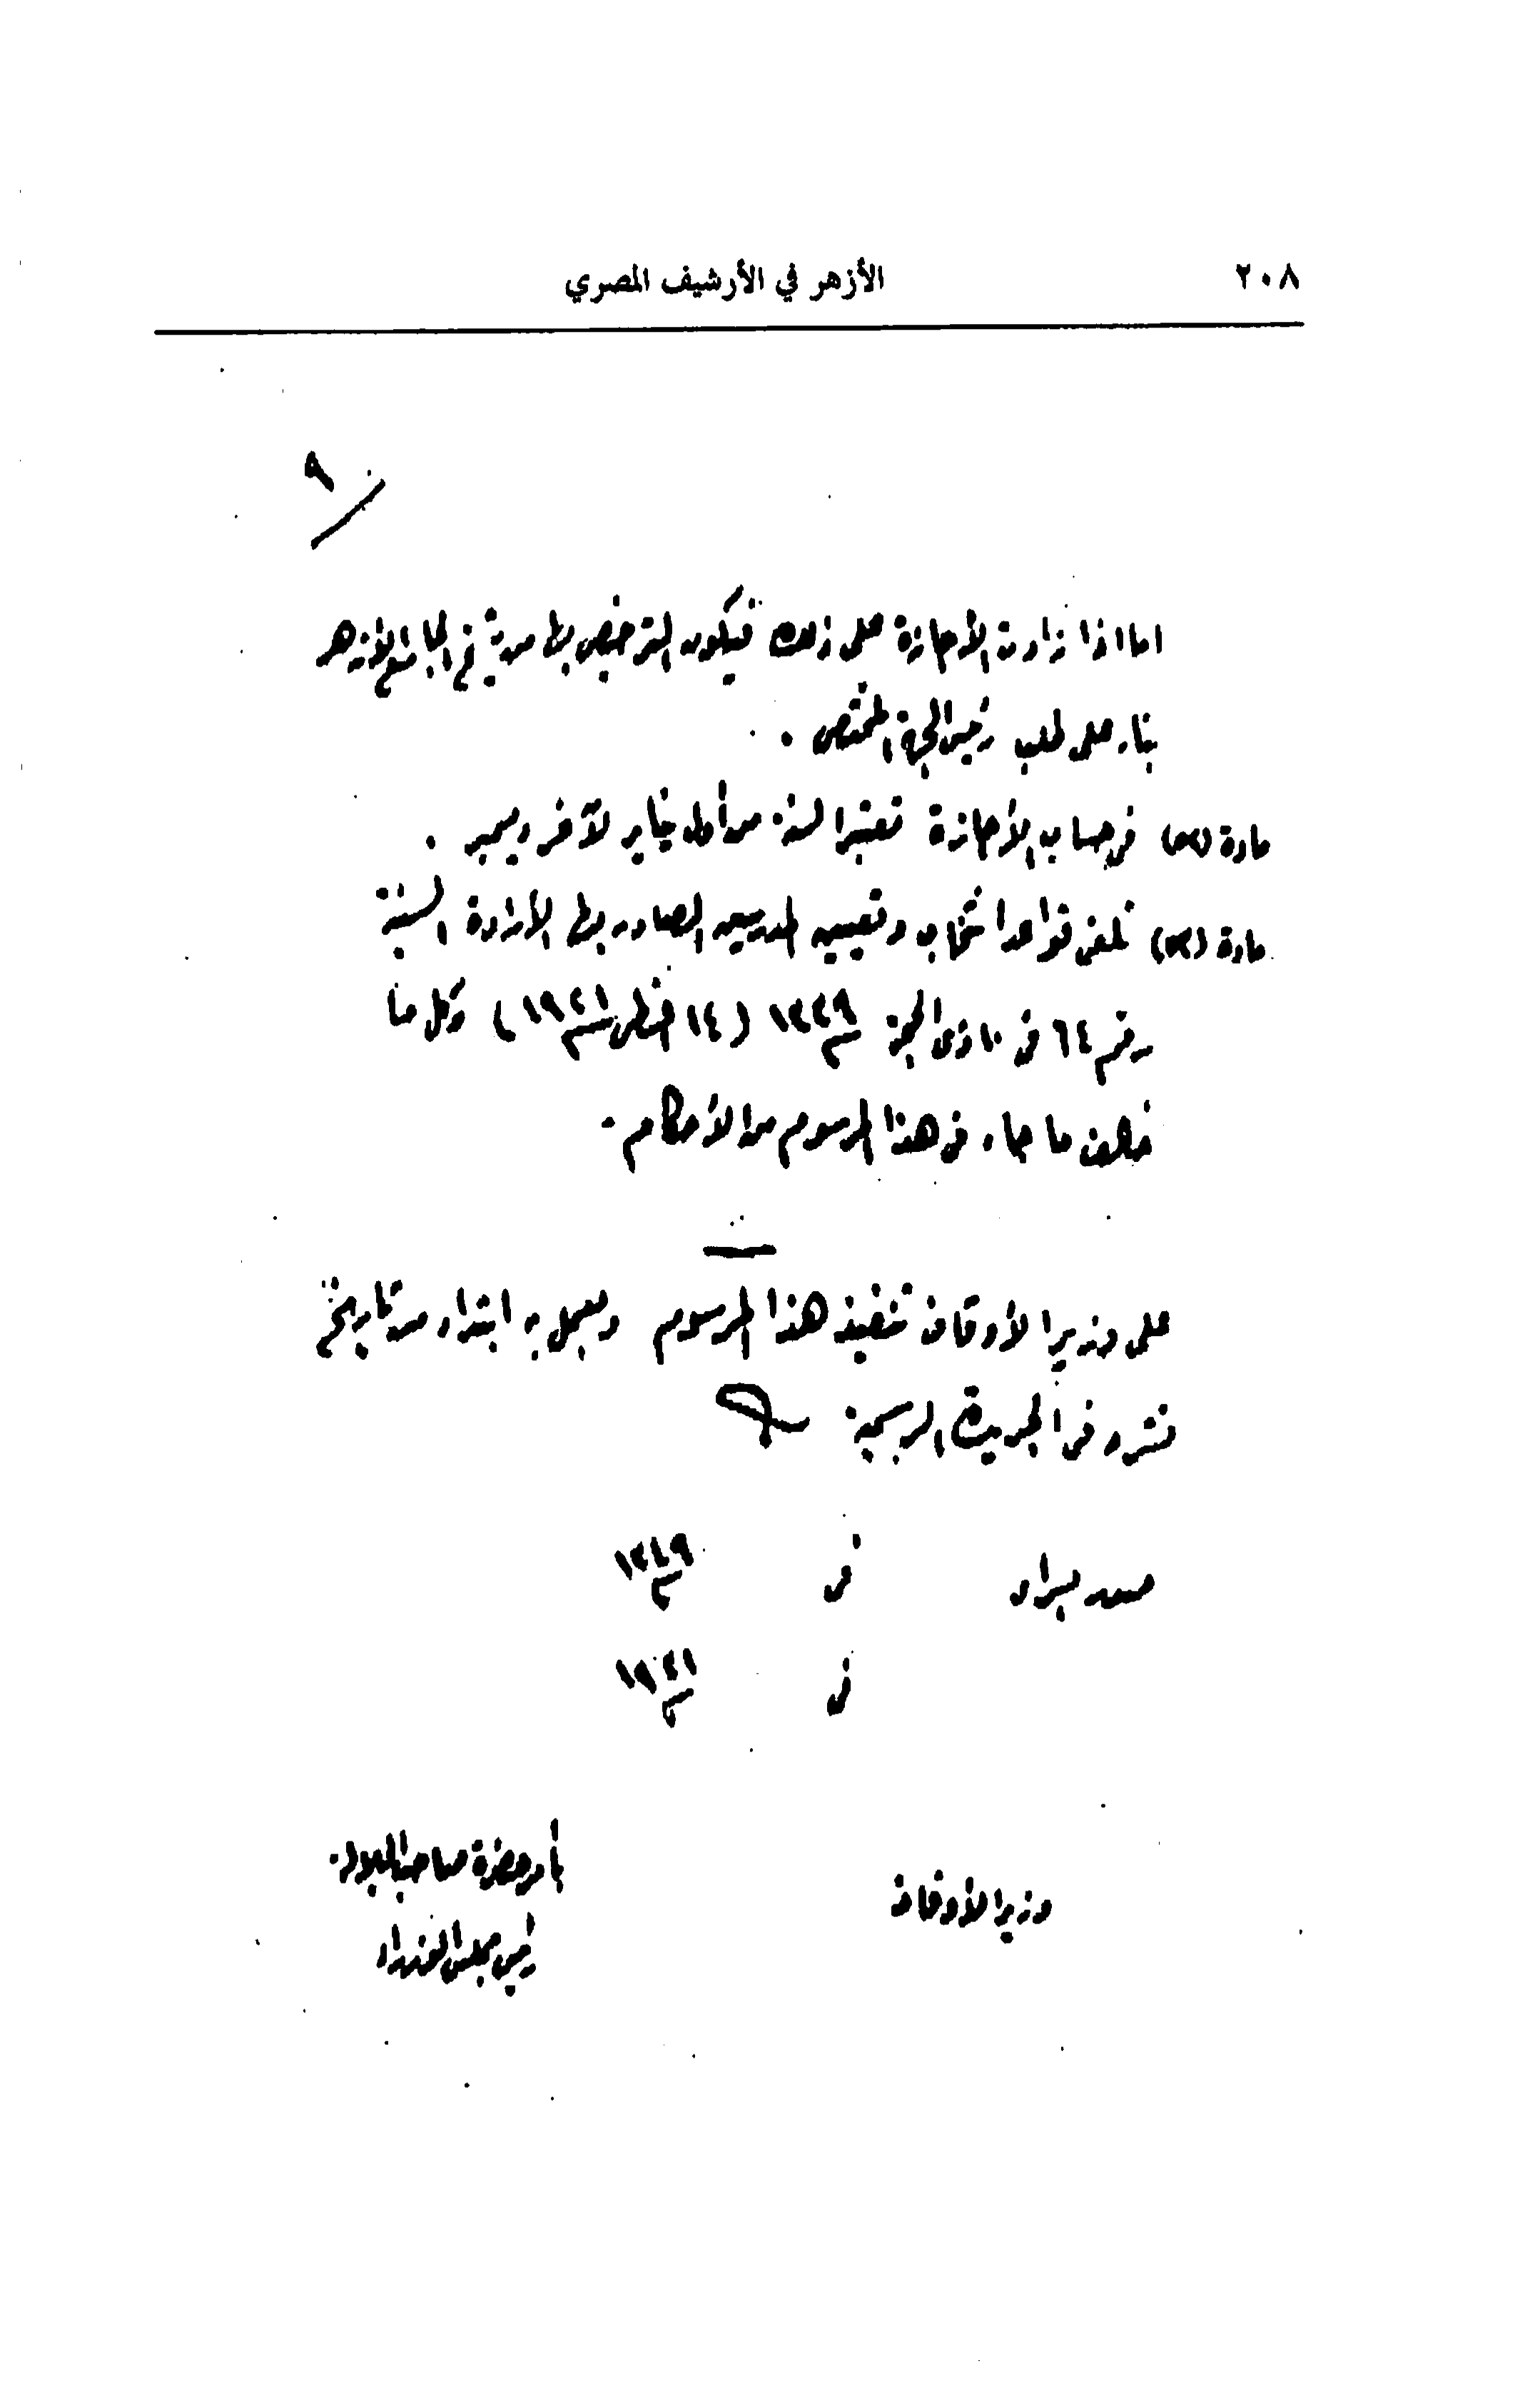 ٢٠٨
الأزهر في الأرشيف المصري
٩
اما اذا زادت الأجازة على ذلك فيكون الترخيص بها من شيخ الجامع الأزهر
بناء على طلب رئيس الجهة المختص .
مادة فى حساب الأجازة تعتبر السنة من أول يناير لآخر ديسمبر .
مادة تلغى قواعد انتخاب وتعيين المدرسين الصادر بها الأرادة السنية
رقم ٦٤ فى ذى الحجة سنة ١٣٣٩ (١٤ اغسطس سنة ١٩٢١) وكل ما
خالف ما جاء فى هذا المرسوم من الأحكام .
على وزير الأوقاف تنفيذ هذا المرسوم ويعمل به ابتداء من تاريخ
نشره فى الجريدة الرسمية
صدر بسراى فى سنة ١٣٤٩
فى سنة ١٩٣١
بأمر حضرة صاحب الجلالة
وزير الأوقاف
رئيس مجلس الوزراء